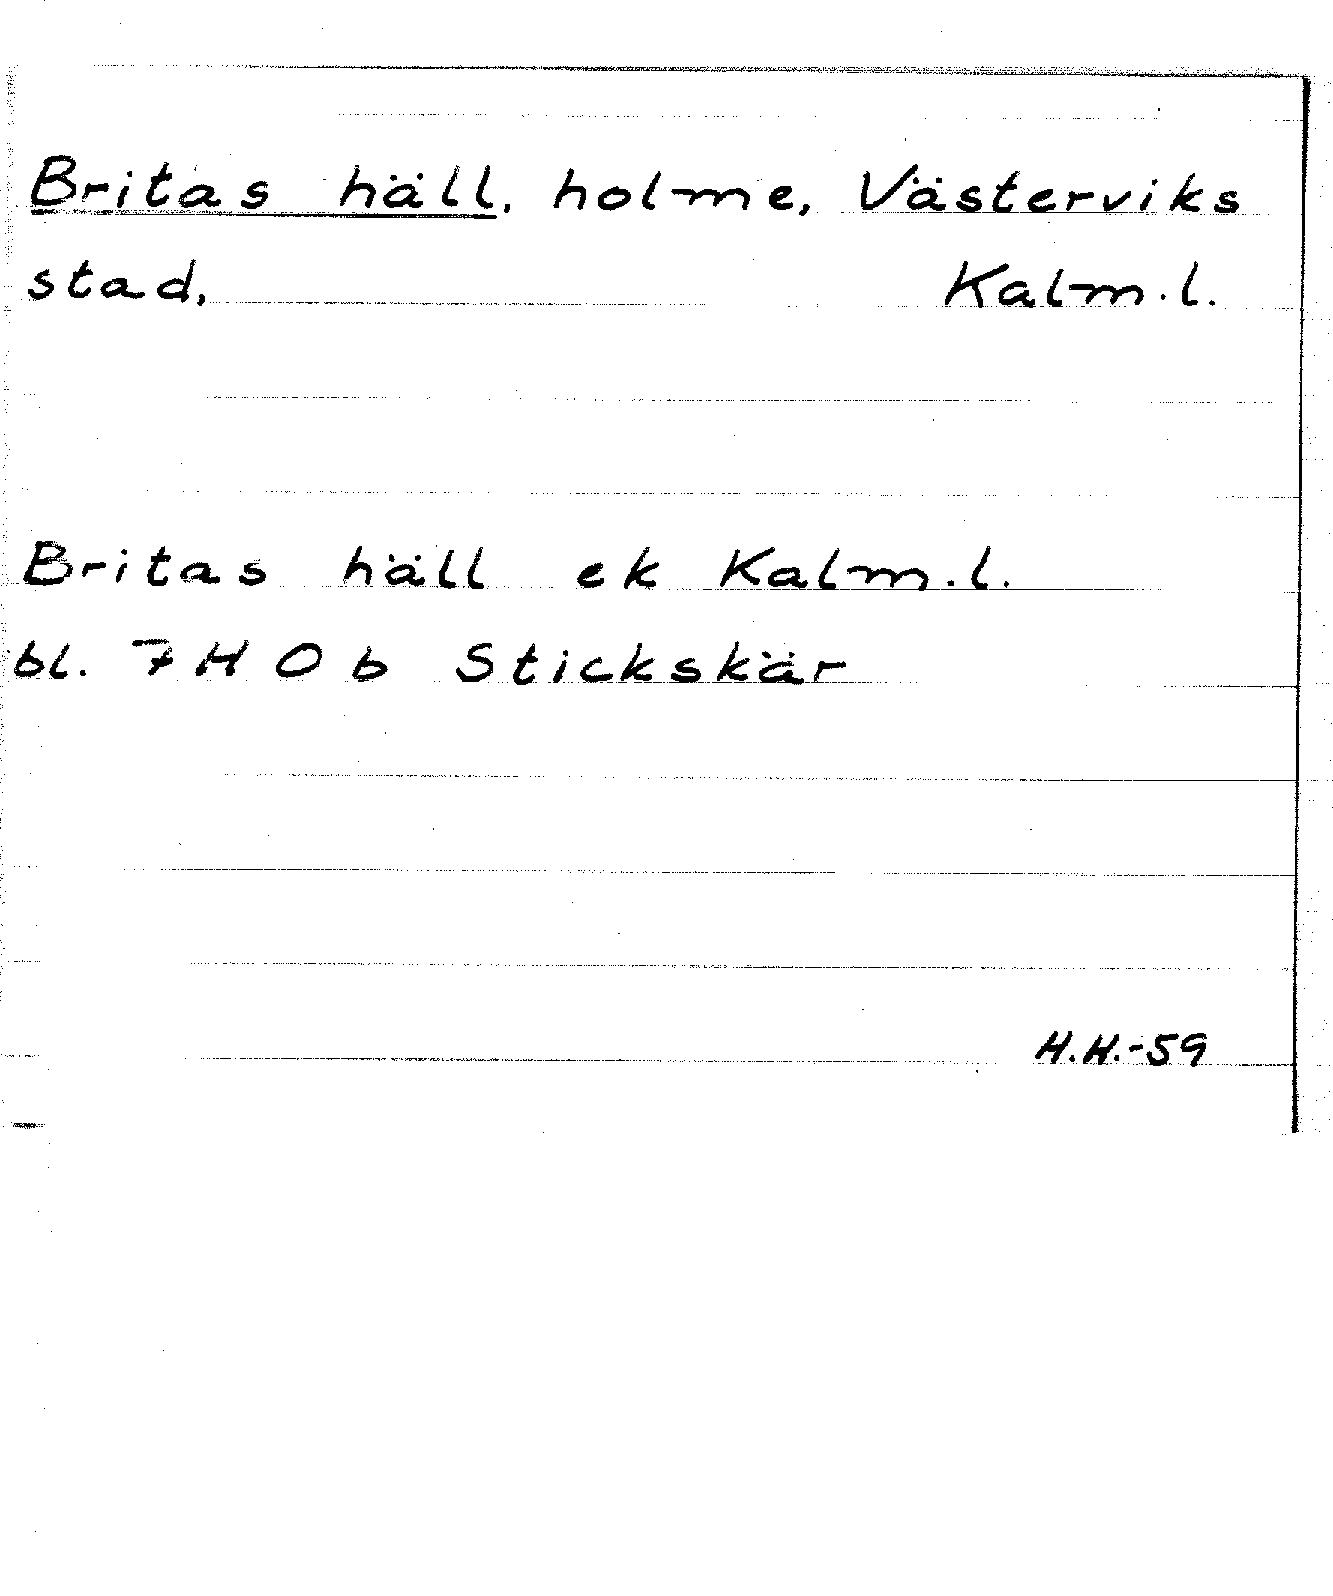 Britas häll, holme, Västerviks
stad, Kalm.l.
Britas häll ek Kalm.l.
bl. 7 H 0 b Stickskär
H.H.-59